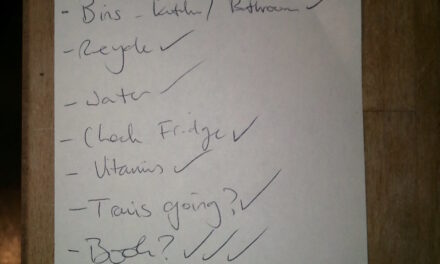 - Bins - kitchen / Bathroom ✓
- Recycle ✓
- Water ✓
- Check Fridge ✓
- Vitamins ✓
- Trains going? ✓
- Book? ✓✓✓